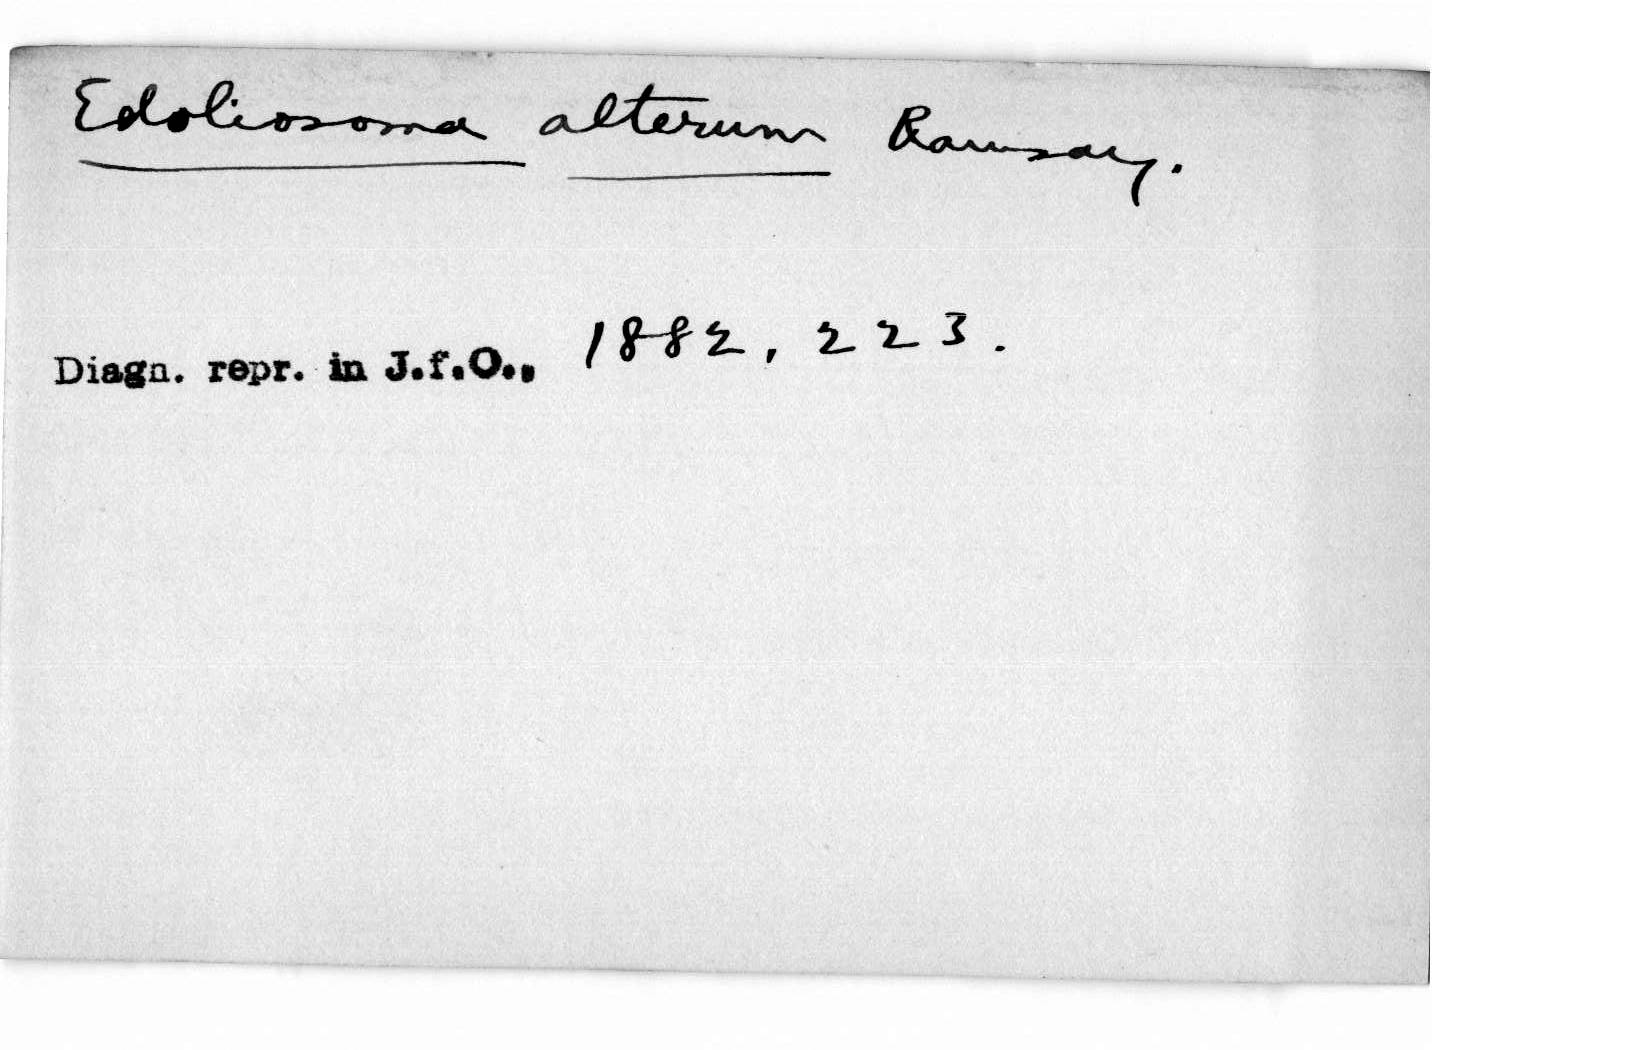 Edoliosoma alterum Ramsay.
Diagn. repr. in J.f.O., 1882, 223.